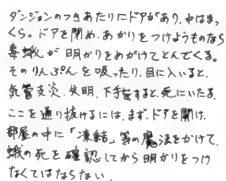 ダンジョンのつきあたりにドアがあり、中はまっ
くら。ドアを閉め、あかりをつけようものなら
毒蛾が明かりをめがけてとんでくる。
そのりんぷんを吸ったり、目に入いると、
気管支炎、失明、下手すると、死にいたる。
ここを通り抜けるには、まず、ドアを開け、
部屋の中に「凍結」等の魔法をかけて、
蛾の死を確認してから明かりをつけ
なくてはならない。